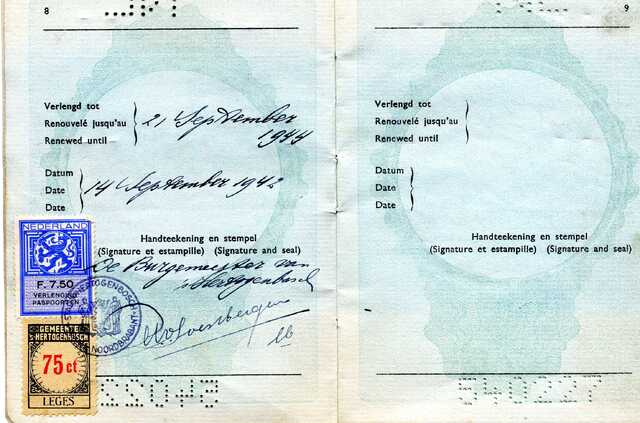 8
Verlengd tot
Renouvelé jusqu'au
Renewed until
21 September
1944
Datum
Date
Date
14 September 1942
Handteekening en stempel
(Signature et estampille) (Signature and seal)
De Burgemeester van
's Hertogenbosch
NEDERLAND
F. 7.50
VERLENGING
PASPOORTEN
'S-HERTOGENBOSCH
NOORDBRABANT
GEMEENTE
'S-HERTOGENBOSCH
75 ct
LEGES
9
Verlengd tot
Renouvelé jusqu'au
Renewed until
Datum
Date
Date
Handteekening en stempel
(Signature et estampille) (Signature and seal)
540227